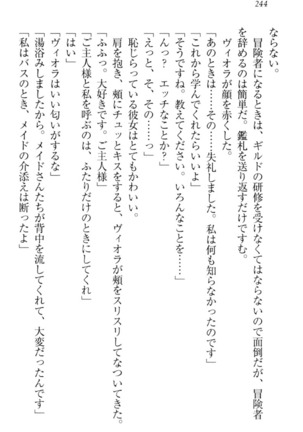 244
ならない。
冒険者になるときは、ギルドの研修を受けなくてはならないので面倒だが、冒険者
を辞めるのは簡単だ。鑑札を送り返すだけですむ。
ヴィオラが顔を赤くした。
「あのときは……その……失礼しました。私は何も知らなかったのです」
「これから学んでくれたらいいよ」
「そうですね。教えてください。いろんなことを……」
「んっ？　エッチなことか？」
「えっと、そ、その……っ」
恥じらっている彼女はとてもかわいい。
肩を抱き、頬にチュッとキスをすると、ヴィオラが頬をスリスリしてなついてきた。
「ふふっ。大好きです。ご主人様」
「ご主人様と私を呼ぶのは、ふたりだけのときにしてくれ」
「はい」
「ヴィオラはいい匂いがするな」
「湯浴みしましたから。メイドさんたちが背中を流してくれて、大変だったんです」
「私はバスのとき、メイドの介添えは断ったよ」